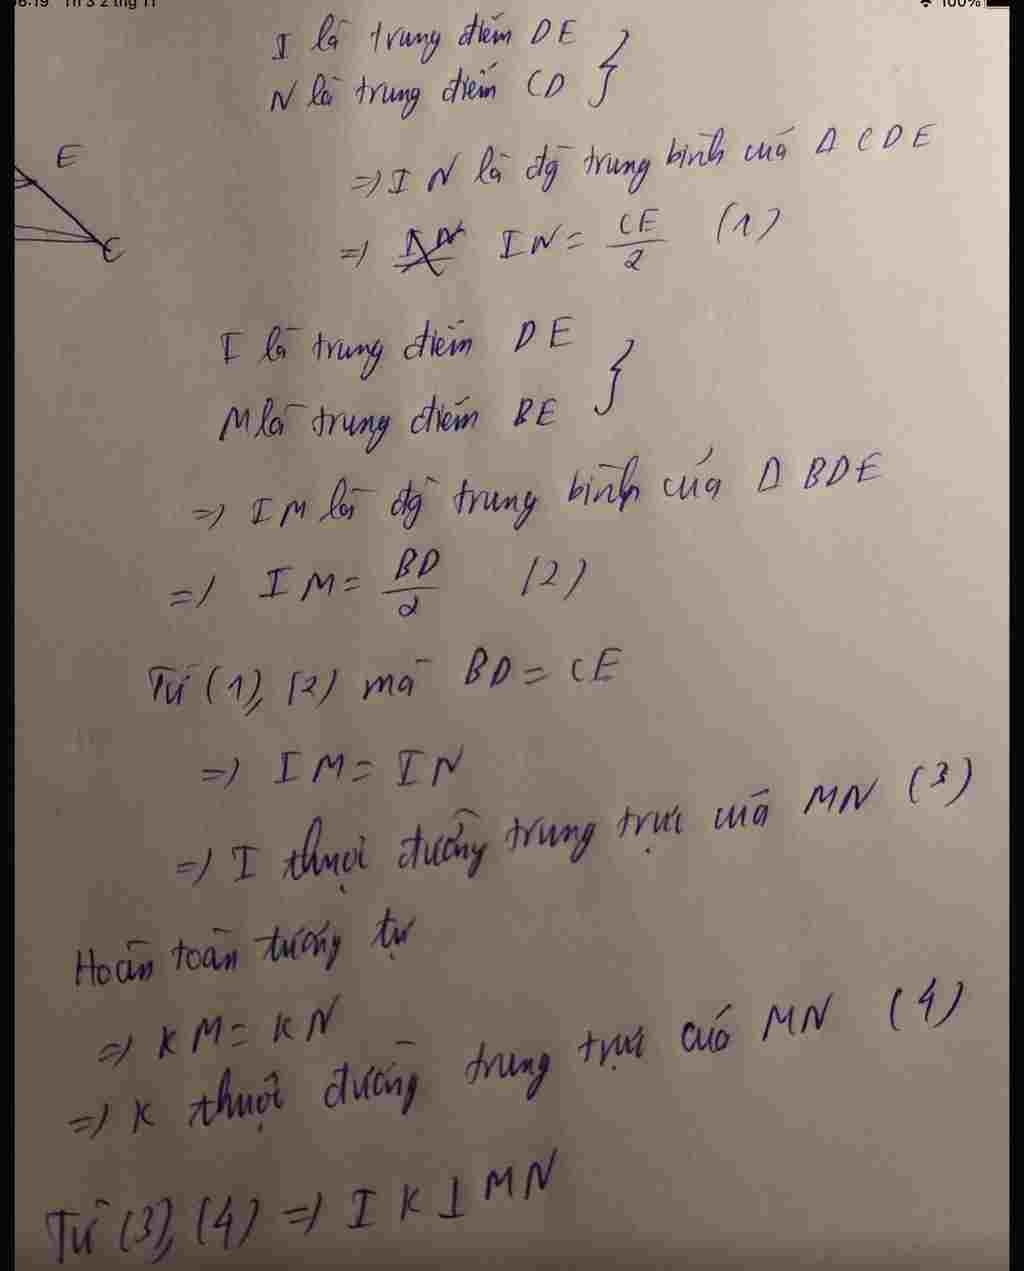 Th 3 2 thg 11
100%
I là trung điểm DE
N là trung điểm CD }
E
=> I N là đg trung bình của Δ CDE
C
=> IN = CE/2 (1)
I là trung điểm DE
M là trung điểm BE }
=> IM là đg trung bình của Δ BDE
=> IM = BD/2 (2)
Từ (1), (2) mà BD = CE
=> IM = IN
=> I thuộc đường trung trực của MN (3)
Hoàn toàn tương tự
=> KM = KN
=> K thuộc đường trung trực của MN (4)
Từ (3), (4) => IK ⊥ MN